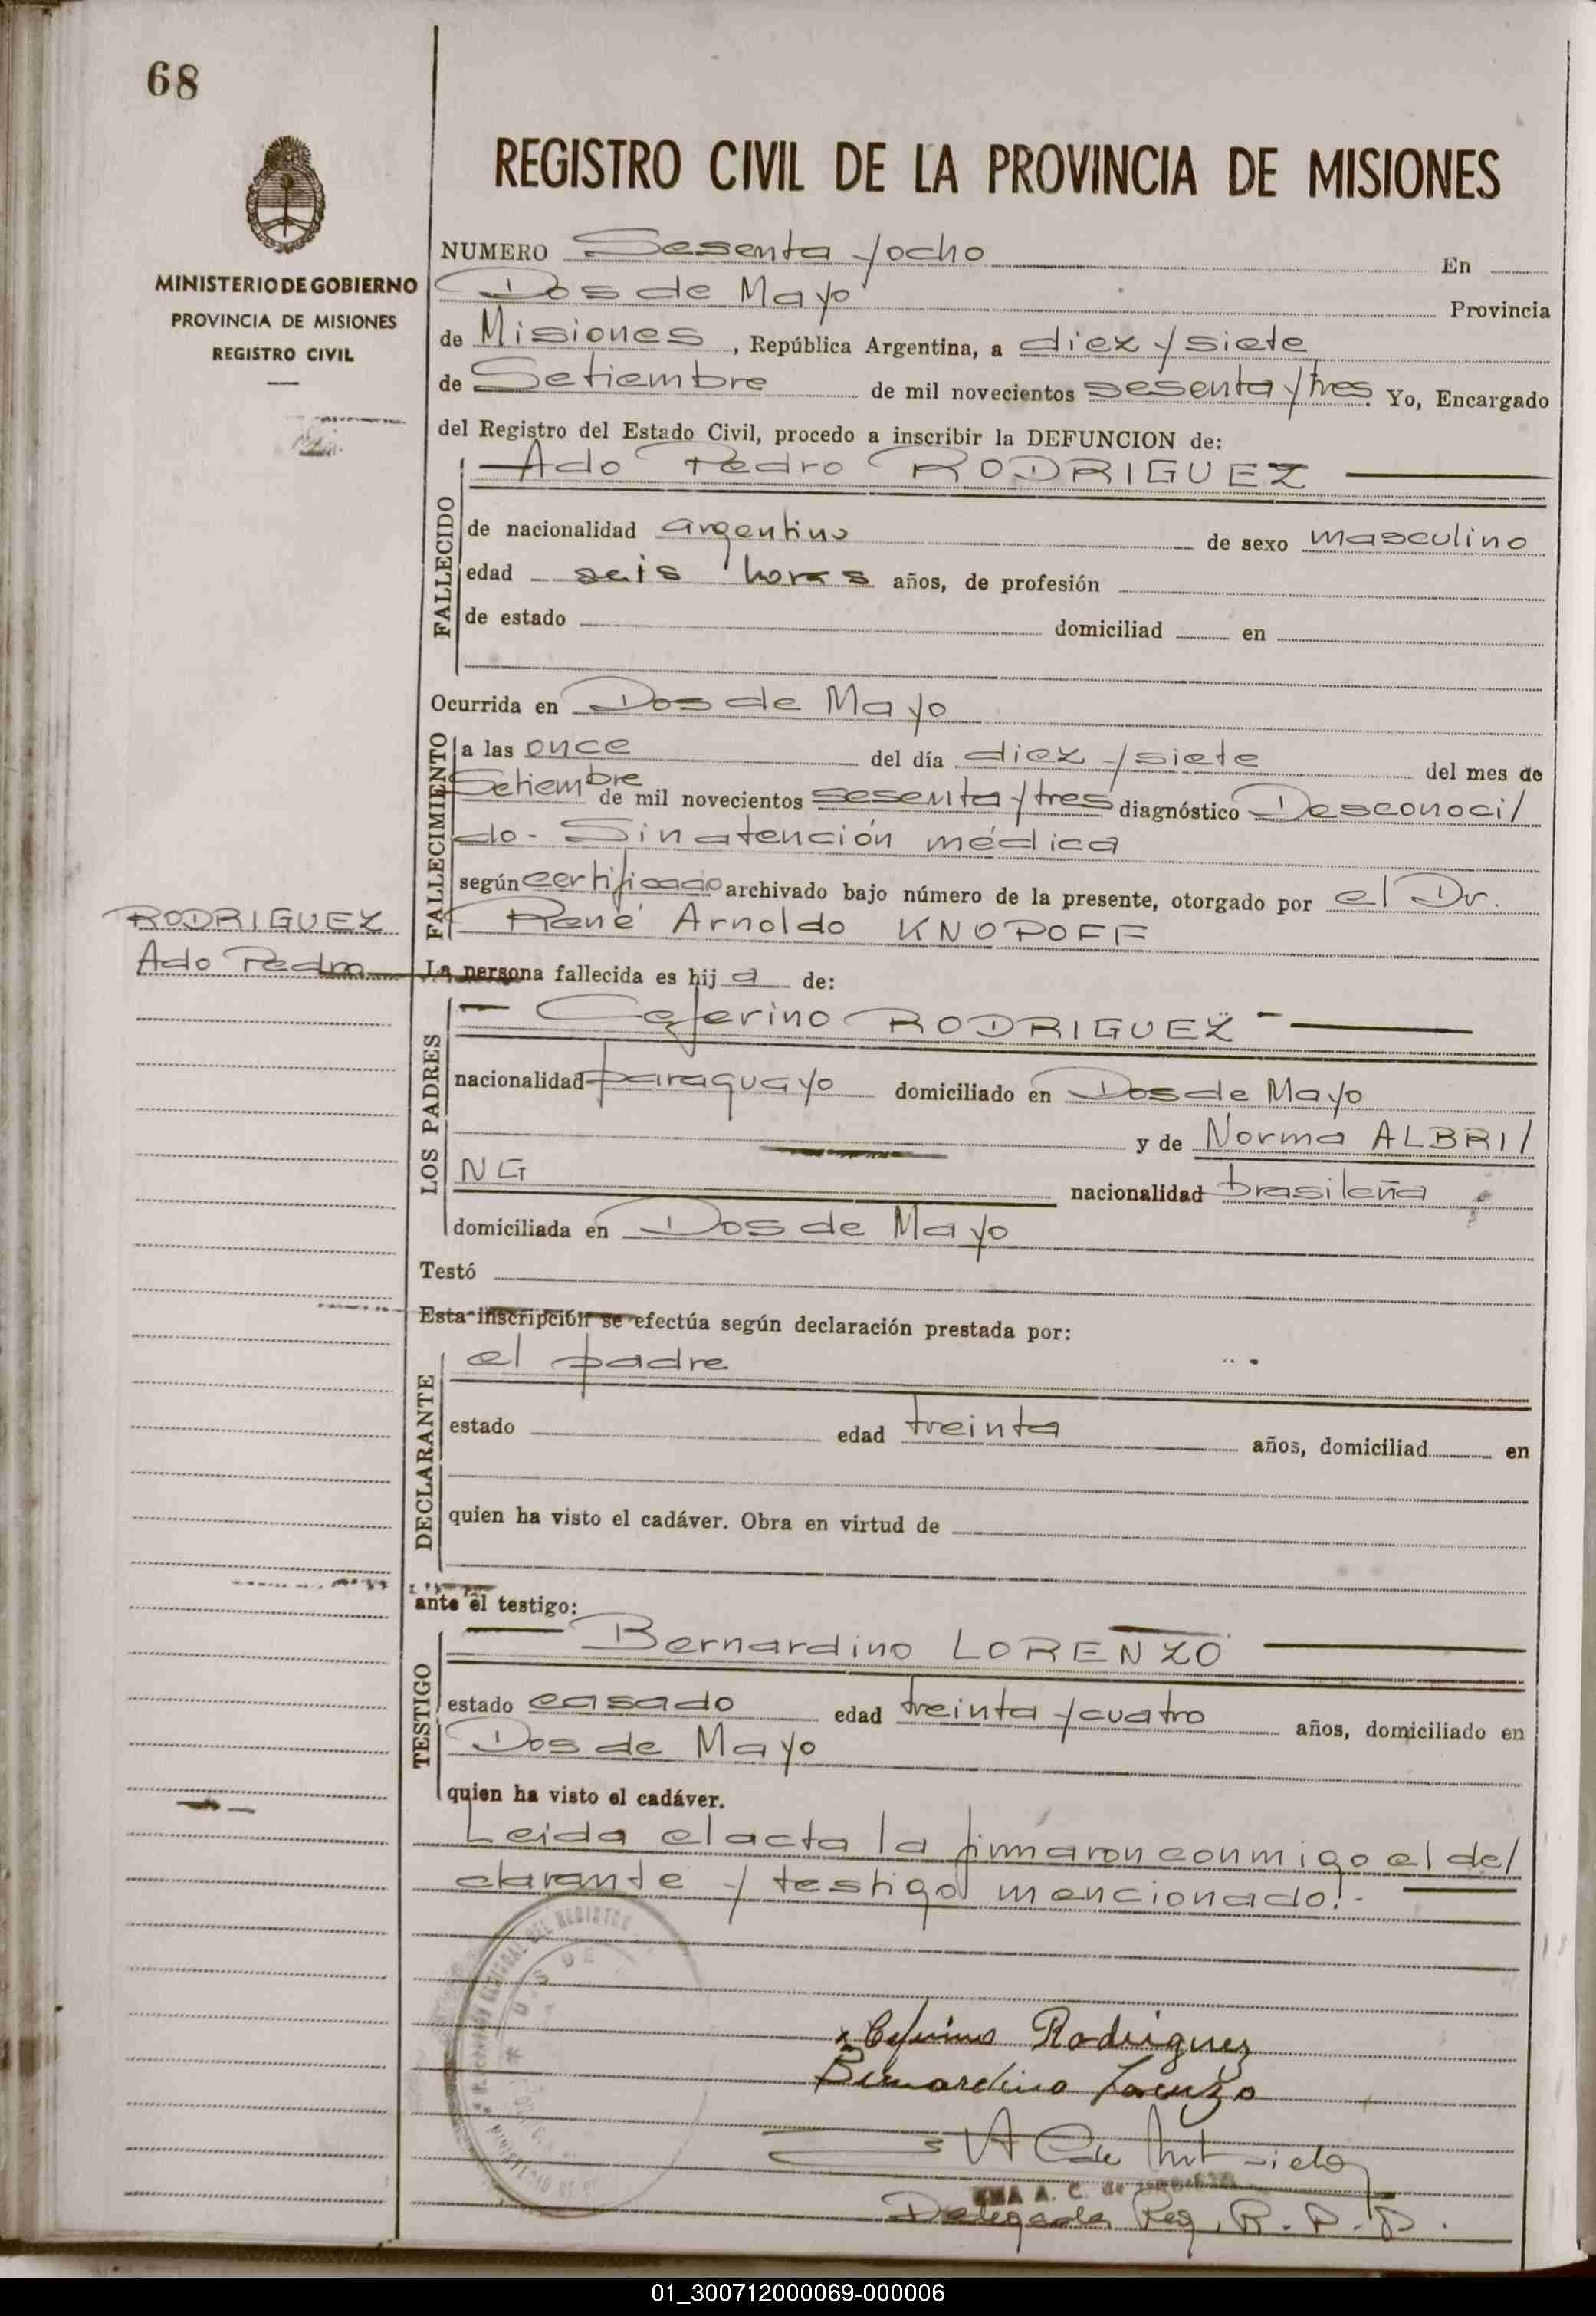 68
MINISTERIO DE GOBIERNO
PROVINCIA DE MISIONES
REGISTRO CIVIL
REGISTRO CIVIL DE LA PROVINCIA DE MISIONES
NUMERO Sesenta y ocho En
Dos de Mayo Provincia
de Misiones, República Argentina, a diez y siete
de Setiembre de mil novecientos sesenta y tres. Yo, Encargado
del Registro del Estado Civil, procedo a inscribir la DEFUNCION de:
FALLECIDO
Ado Pedro RODRIGUEZ
de nacionalidad argentino de sexo masculino
edad seis horas años, de profesión
de estado domiciliad en
Ocurrida en Dos de Mayo
FALLECIMIENTO
a las once del día diez y siete del mes de
Setiembre de mil novecientos sesenta y tres diagnóstico Desconoci/
do.- Sin atención médica
según certificado archivado bajo número de la presente, otorgado por el Dr.
René Arnoldo KNOPOFF
RODRIGUEZ
Ado Pedro
La persona fallecida es hij a de:
LOS PADRES
Ceferino RODRIGUEZ
nacionalidad paraguayo domiciliado en Dos de Mayo
y de Norma ALBRI/
NG nacionalidad brasileña
domiciliada en Dos de Mayo
Testó
Esta inscripción se efectúa según declaración prestada por:
DECLARANTE
el padre
estado edad treinta años, domiciliad en
quien ha visto el cadáver. Obra en virtud de
ante el testigo:
TESTIGO
Bernardino LORENZO
estado casado edad treinta y cuatro años, domiciliado en
Dos de Mayo
quien ha visto el cadáver.
Leida el acta la firmaron conmigo el de/
clarante y testigo mencionado.-
Ceferino Rodriguez
Bernardino Lorenzo
A. C. de
Delegada Reg. R. P. P.
01_300712000069-000006